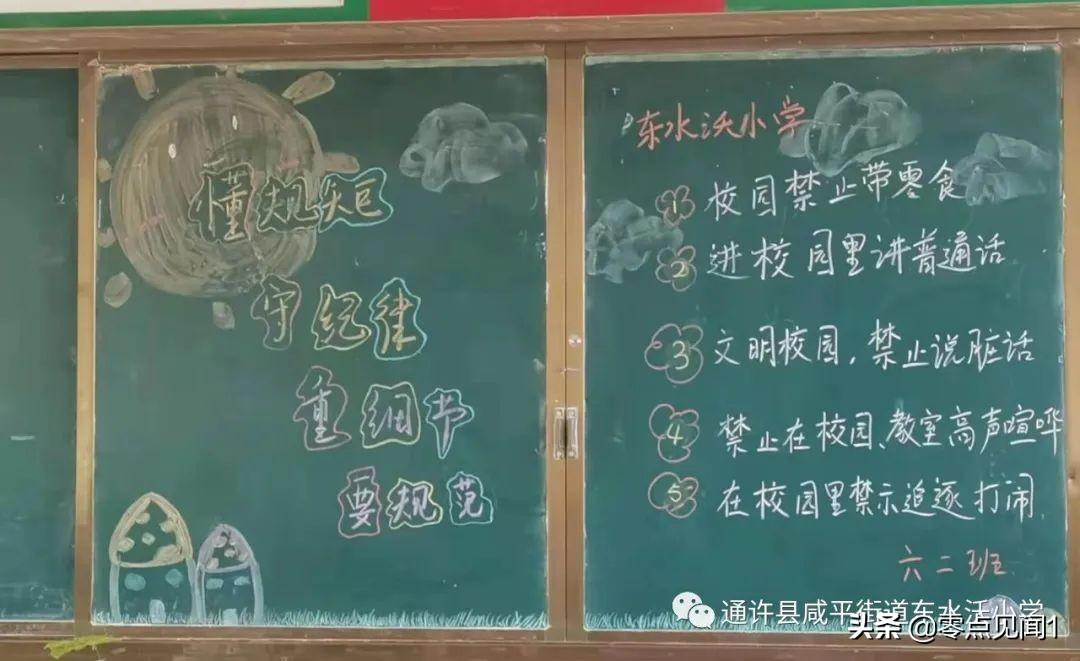 懂规矩
守纪律
重细节
要规范
东水沃小学
1 校园禁止带零食
2 进校园里讲普通话
3 文明校园，禁止说脏话
4 禁止在校园、教室高声喧哗
5 在校园里禁示追逐打闹
六二班
通许县咸平街道东水沃小学
头条@零点见闻1